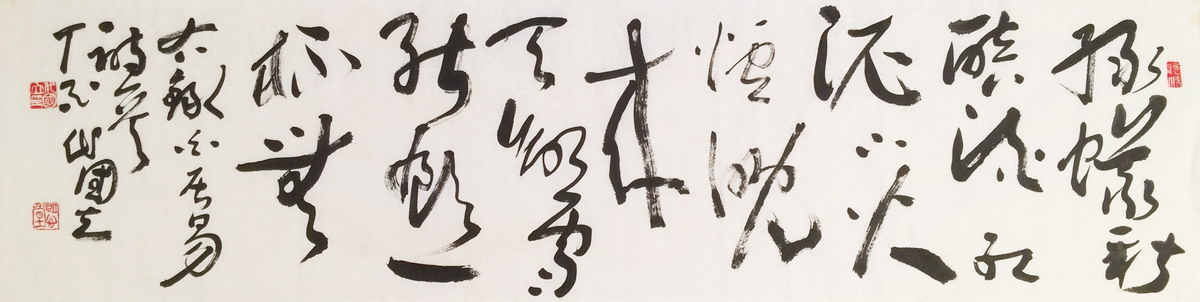 綠蟻新
醅酒紅
泥小火
爐晚
來
天欲雪
能飲一
杯無
右錄白居易
詩
丁酉 國